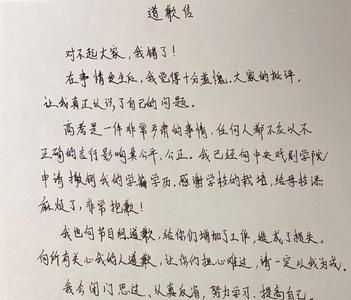 道歉信
对不起大家，我错了！
在事情发生后，我觉得十分羞愧。大家的批评，
让我真正认识了自己的问题。
高考是一件非常严肃的事情，任何人都不应以不
正确的言行影响其公平、公正。我已经向中央戏剧学院
申请撤销我的学籍学历。感谢学校的栽培，给母校添
麻烦了，非常抱歉！
我也向节目组道歉，给你们增加了工作，造成了损失。
向所有关心我的人道歉，让你们担心难过，请一定以我为戒。
我会闭门思过、认真反省，努力学习、提高自己。